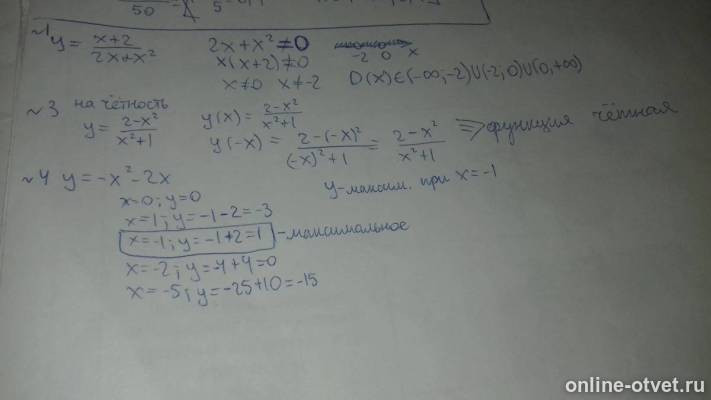 50 5
~1 y = (x+2)/(2x+x²) 2x+x² ≠ 0 -2 0 x
x(x+2) ≠ 0
x≠0 x≠-2 D(x)∈(-∞;-2)∪(-2;0)∪(0,+∞)
~3 на чётность
y = (2-x²)/(x²+1) y(x) = (2-x²)/(x²+1)
y(-x) = (2-(-x)²)/((-x)²+1) = (2-x²)/(x²+1) => функция чётная
~4 y = -x²-2x y-максим. при x=-1
x=0; y=0
x=1; y=-1-2=-3
x=-1; y=-1+2=1 -максимальное
x=-2; y=-4+4=0
x=-5; y=-25+10=-15
online-otvet.ru